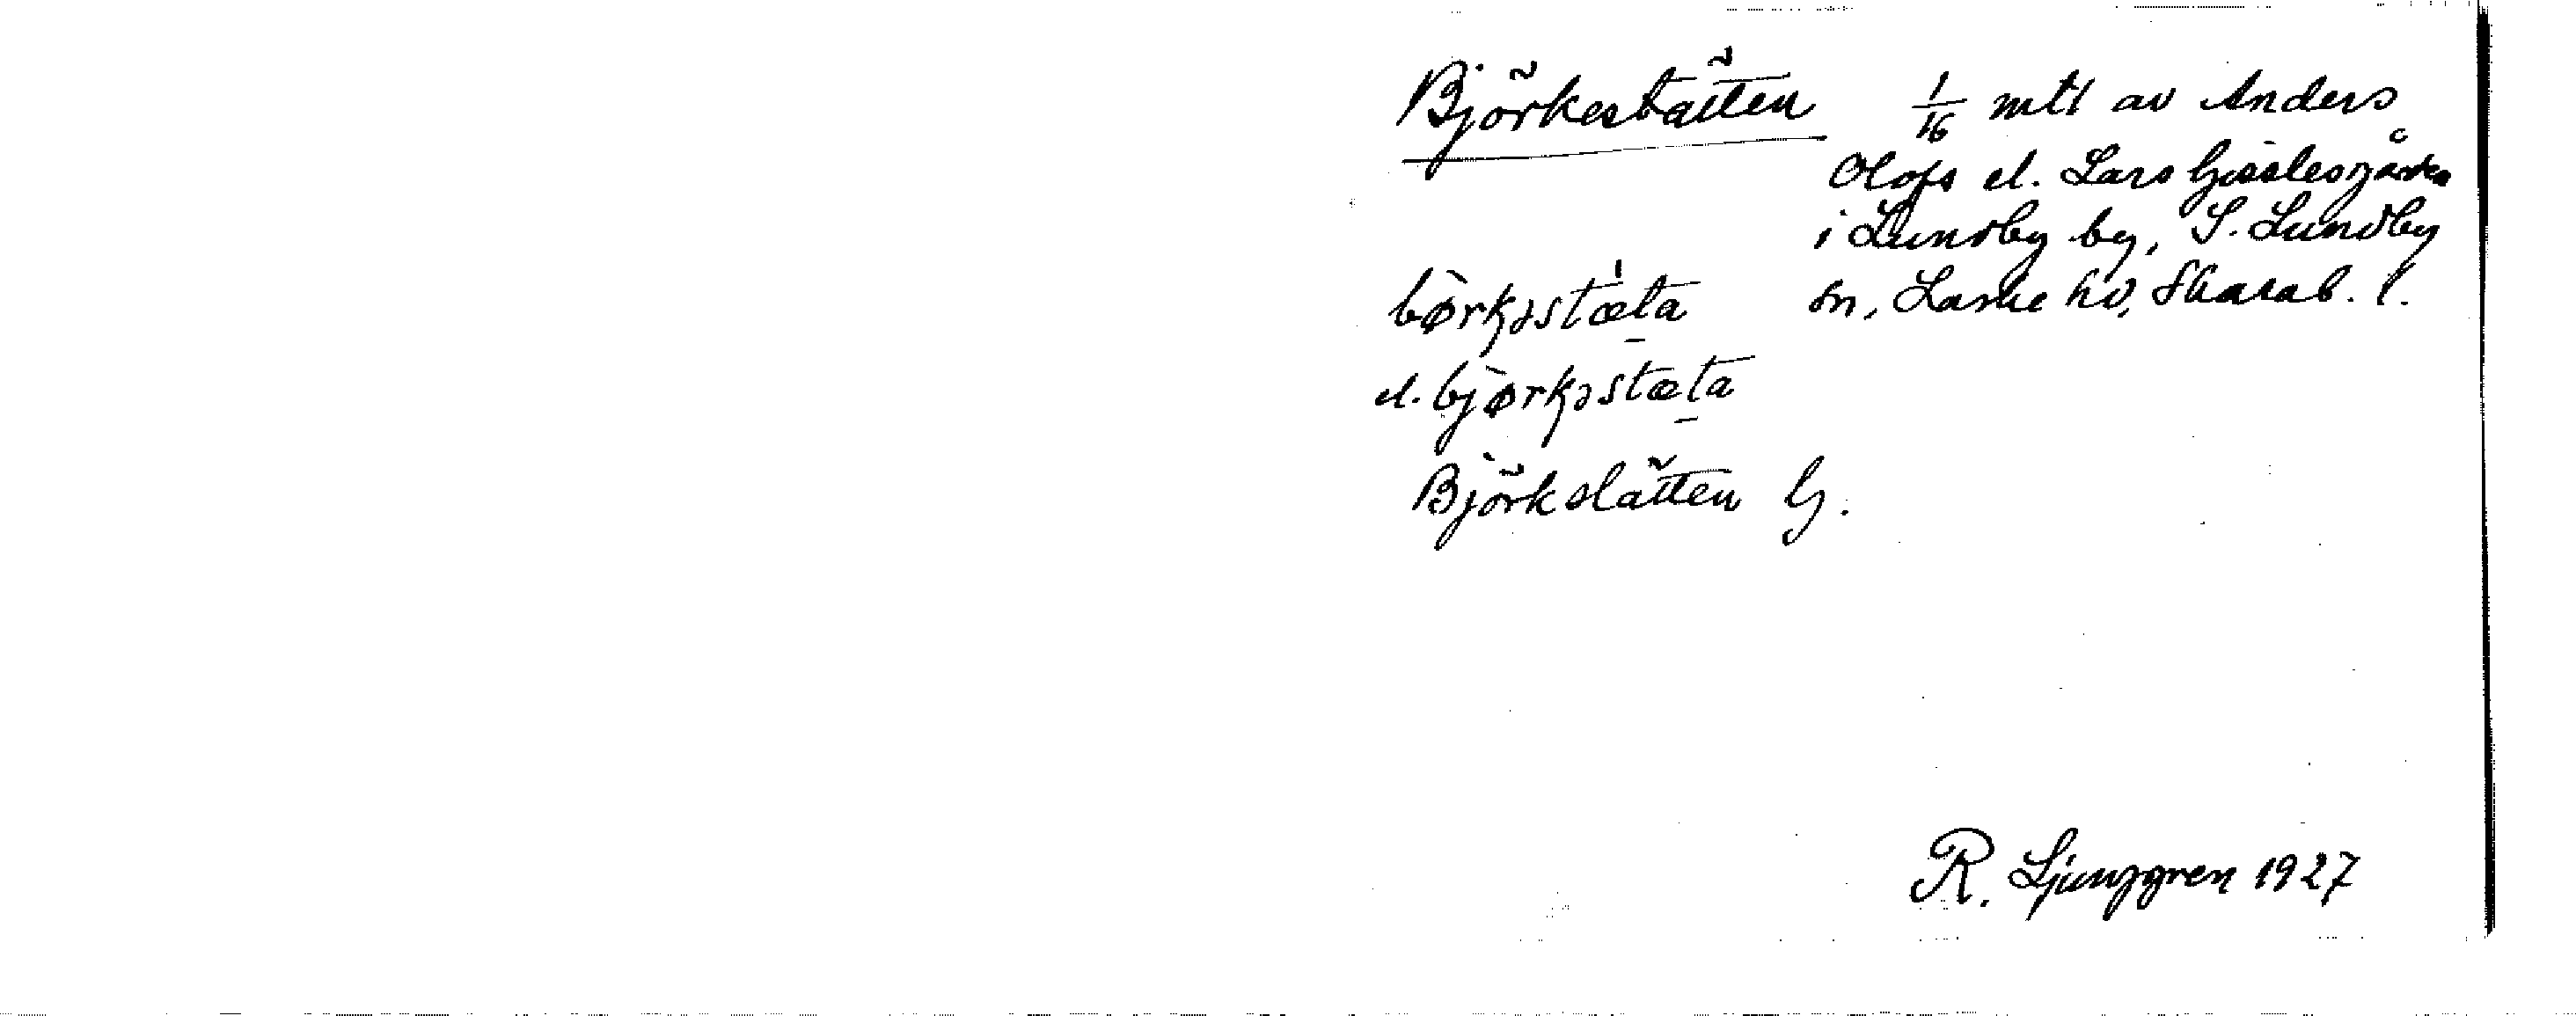 Björkestätten 1/16 mtl av Anders
Olofs el. Lars Gisslesgården
i Lundby by, S. Lundby
sn, Laske hd, Skarab. l.
bø̀rkəstæ̀ta
el. bjø̀rkəstæta
Björkslätten G.
R. Ljunggren 1927